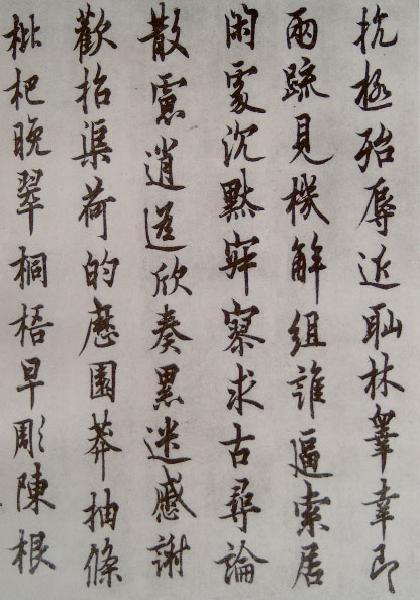 抗極殆辱近耻林皋幸即
兩疏見機解組誰逼索居
閑處沉默寂寥求古尋論
散慮逍遙欣奏累遣慼謝
歡招渠荷的歷園莽抽條
枇杷晚翠桐梧早彫陳根